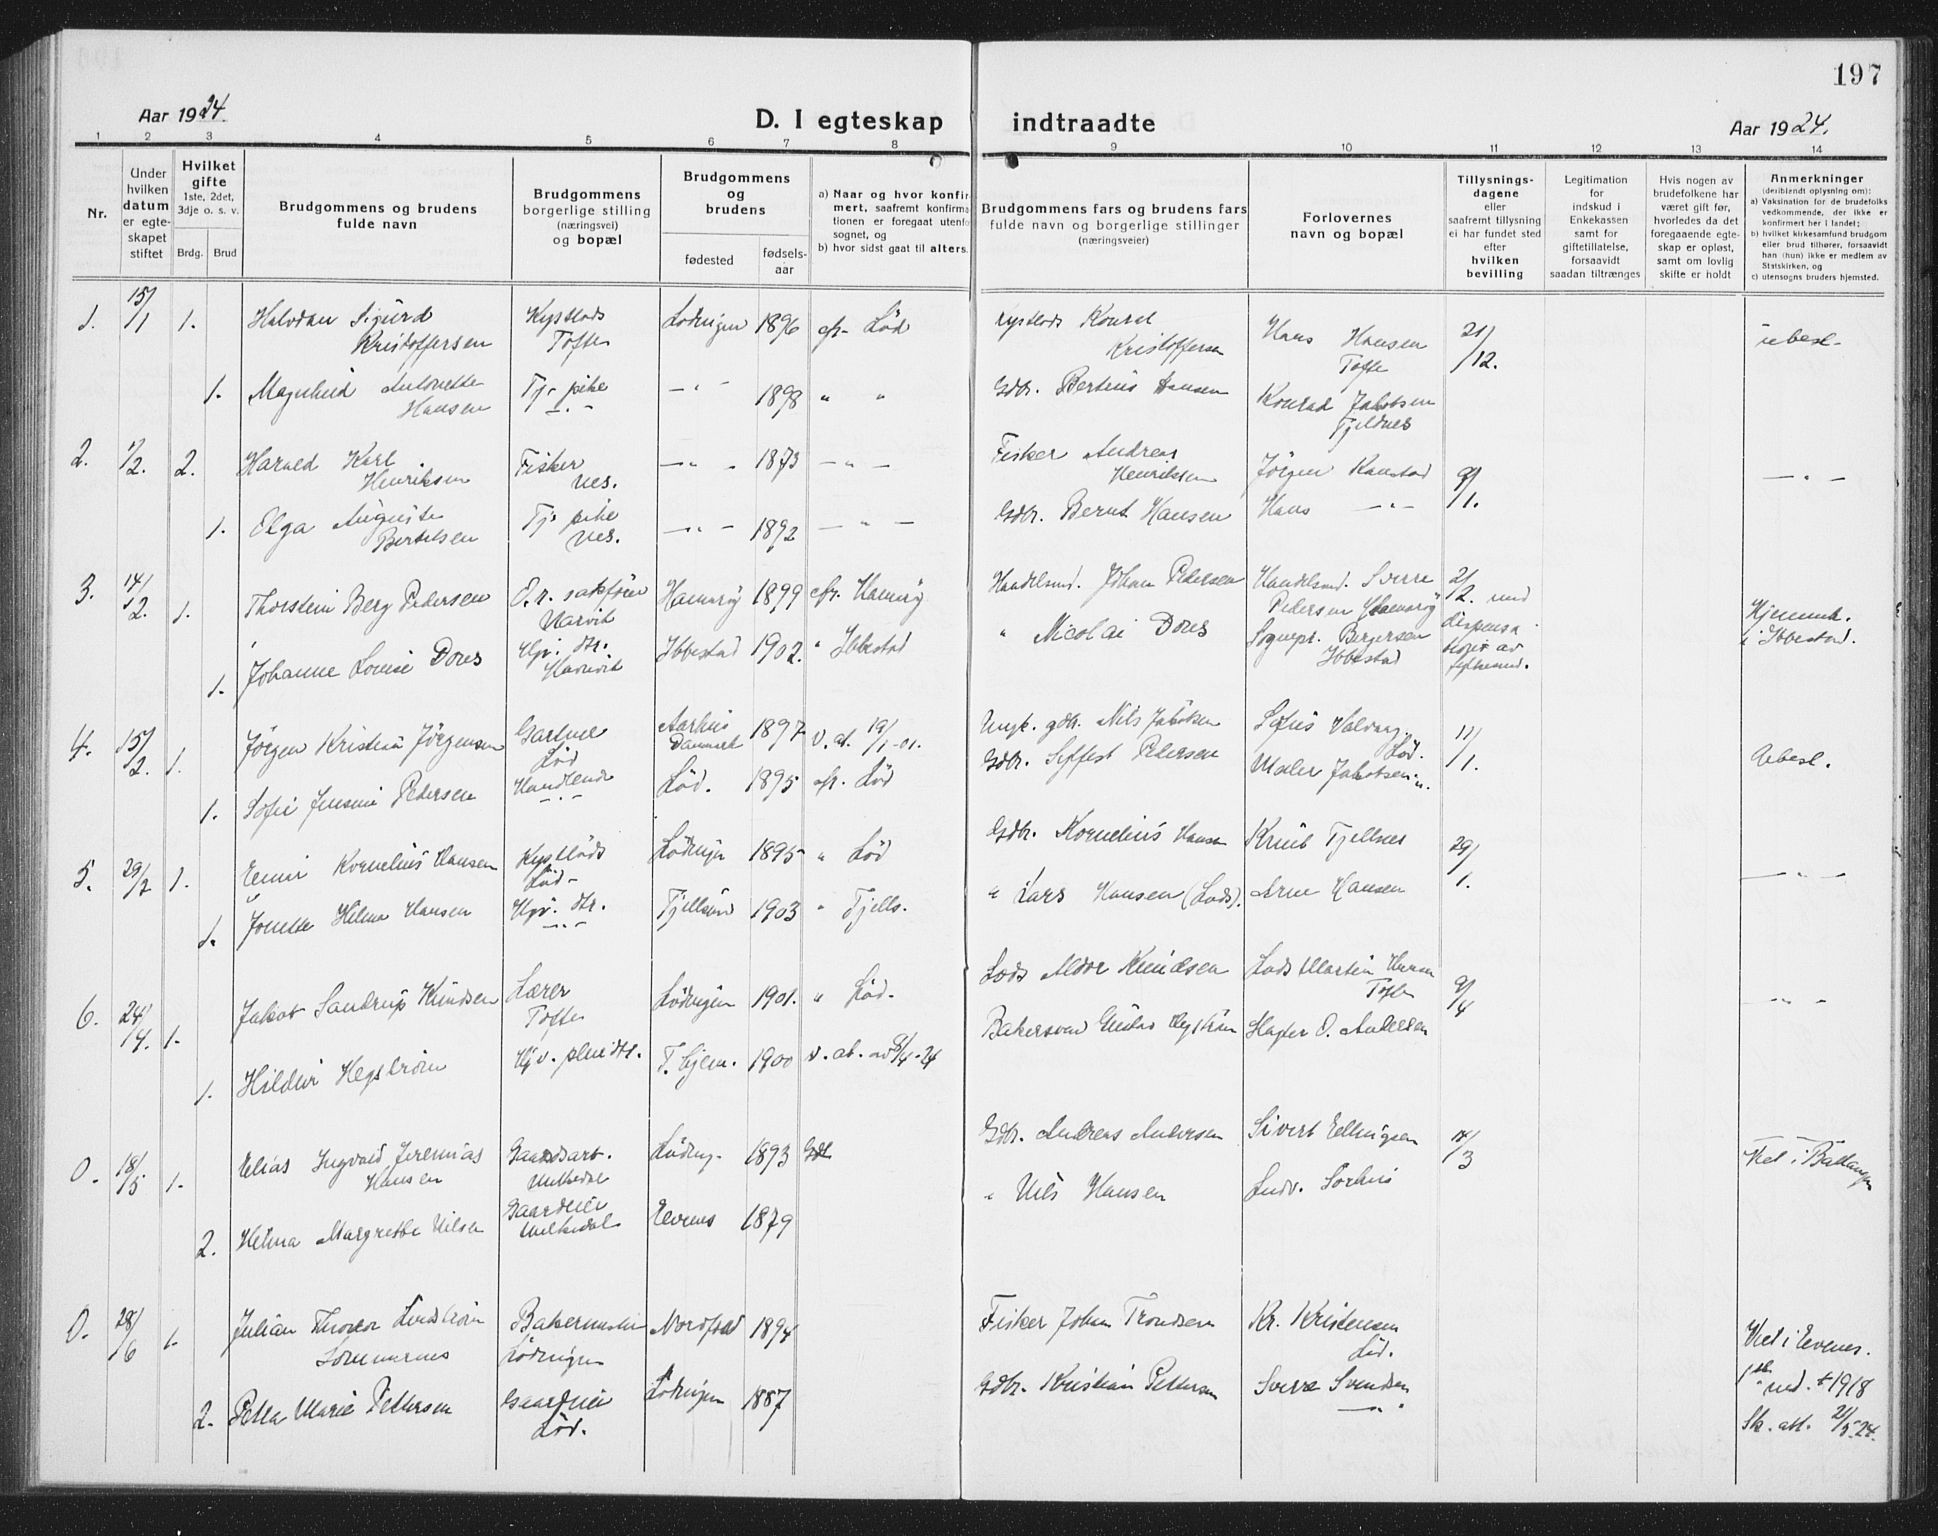 197
Aar 1924.
D. I egteskap
indtraadte
Aar 1924.
1 2 3 4 5 6 7 8 9 10 11 12 13 14
Nr.
Under hvilken datum er egte-skapet stiftet
Hvilket gifte
1ste, 2det, 3dje o. s. v.
Brdg. Brud
Brudgommens og brudens fulde navn
Brudgommens borgerlige stilling (næringsvei) og bopæl
Brudgommens og brudens
fødested
fødsels-aar
a) Naar og hvor konfir
mert, saafremt konfirma
tionen er foregaat utenfo
sognet, og
b) hvor sidst gaat til alters.
Brudgommens fars og brudens fars
fulde navn og borgerlige stillinger
(næringsveier)
Forlovernes
navn og bopæl
Tillysnings-
dagene
eller
saafremt tillysning
ei har fundet sted
efter
hvilken
bevilling
Legitimation
for
indskud i
Enkekassen
samt for
giftetillatelse,
forsaavidt
saadan tiltrænges
Hvis nogen av
brudefolkene har
været gift før,
hvorledes da det
foregaaende egte-
skap er opløst,
samt om lovlig
skifte er holdt
Anmerkninger
(deriblandt oplysning om):
a) Vaksination for de brudefolks
vedkommende, der ikke er
konfirmert her i landet;
b) hvilket kirkesamfund brudgom
eller brud tilhører, forsaavidt
han (hun) ikke er medlem av
Statskirken, og
c) utensogns bruders hjemsted.
1. 15/1 1. Halvdan Sigurd Kristoffersen Kystlods Tofte Lødingen 1896 Lød Kystlods Konrad Kristoffersen Hans Hansen Tofte 21/12. ubesl.
1. Magnhild Antonette Hansen Tj. pike 1898 " " Gdbr. Hansen Konrad Jakobsen Fjeldnes
2. 1/2. 2. Harald Karl Henriksen Fisker Nes. — " — 1873 — " — Fisker Andreas Henriksen Jørgen Kanstad 9/1. — " —
1. Olga Auguste Bertelsen Tj. pike Nes. — " — 1892 — " — Gdbr. Bernt Hansen Hans — " —
3. 14/2. 1. Thorstein Berg Pedersen O.r. sakfører Narvik Hamarøy 1899 Hamarøy Handelsmd. Johan Pedersen Handelsmd. Sverre Pedersen Hamarøy 2/2. med dispensa
1. Johanne Louise Dores Havnvik Ibbestad 1902. " Ibbestad " Nicolai Dores Sognepr. Bergersen Ibbestad av Hjemmeh. i Ibbestad.
4. 15/2. 1. Jörgen Kristian Jörgensen Gartner Lød Aarhus Danmark 1897 v. at. 19/1-01. gdbr. Nils Jakobsen Sofus Lød. 11/1. Ubesl.
1. Sofie Jensine Pedersen Handlende — " — Lød. 1895 Lød Gdbr. Pedersen Maler Jakobsen "
5. 29/2 1. Kornelius Hansen Kystlods Lød. Lödingen 1895 " Lød Gdbr. Kornelius Hansen Knut Fjellnes 29/1. — " —
1. Jonette Helma Hansen — " — Tjellsund 1903 " Tjells. " Lars Hansen (Lods). Arne Hansen
6. 24/4. 1. Jakob Sandrup Knudsen Lærer Tofte Lödingen 1901. " Lød. Lods Aldor Knudsen Lods Martin Tofte 9/4 — " —
1. Hildur Hegstrøm 1900 v. at. av 8/4-24 Hegstrøm O. Andersen
0. 18/5 1. Elias Ingvald Jeremias Hansen Gaardsarb. Löding. 1893 Gdbr. Andreas Andersen Sivert Ellingsen 14/3 Viet i Ballangen
2. Helma Margrethe Nilsen Evenes 1879 " Nils Hansen
0. 28/6 1. Julian Lindstrøm Sommernes Bakermester Lödingen 1894 Fisker Johan Trondsen Kr. Kristensen Lød. Viet i Evenes.
2. Petra Marie Pettersen Lød. Lödingen 1887 Gdbr. Kristian Pettersen Sverre Svendsen — " — † 1918
Sk. att. 21/5-24.